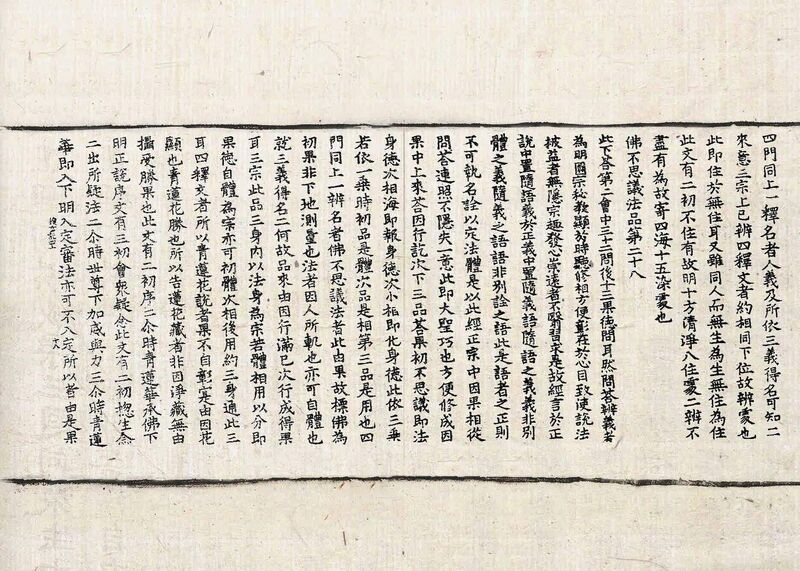 四門同上一釋名者人義及所依三義得名可知二
來意三宗上已辨四釋文者約相同下位故辨處也
此即住於無住耳又雖同人而無生為生無住為住
此文有二初不住有故明十方清淨八住處二辨不
盡有為故寄四海十五染處也
佛不思議法品第二十八
此下荅第二會中三十二問後十二果德問耳然問荅辨義者
為明因宗秘教顯於時聽修相方便彰在於心目致使說法
披益者無隱宗趣發心崇遠者不翳習求是故經言於正
說中置隨義語於正義中置隨義語隨語之義義非別
體之義隨義之語語非別詮之語此是語者之正則
不可執名詮以定法體是以此經正宗中因果相從
問荅連照不隱失一意此即大聖巧也方便修成因
果中上來荅因行訖次下三品荅果初不思議即法
身德次相海即報身德次小相即化身德此依三乘
若依一乘時初品是體次品是相第三品是用也四
門同上一辨名者佛不思議法者此由果故標佛為
初果非下地測量也法者因人所軌也亦可自體也
就三義得名二何故品來由因行滿已次行成得果
耳三宗此品三身內以法身為宗若體相用以分即
果德自體為宗亦可初體次相後用約三身通此三
耳四釋文者所以青蓮花說者果不自彰寔由因花
顯也青蓮花勝也所以告蓮花藏者非因淨藏無由
攝受勝果也此文有二初序二尒時青蓮華承佛下
明正說序文有三初會衆疑念此文有二初惣生念
二出所疑法二尒時世尊下加威與力三尒時青蓮
華即入下明入定審法亦可不入定所以者由是果